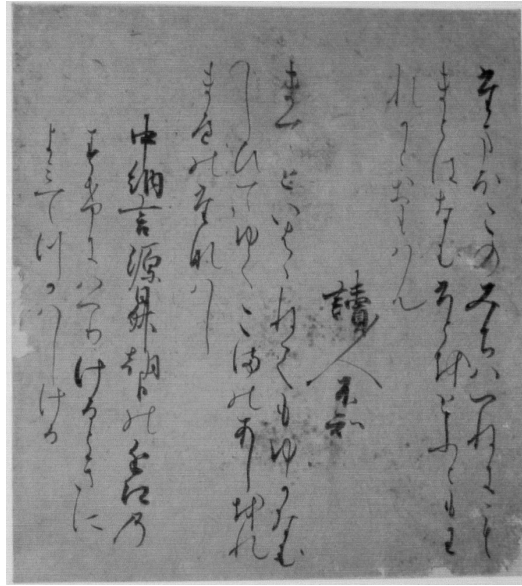 たまほこのみちはつねにも
まとはなむひとをとふともわ
れかとおもはん
讀人不知
まてといはゝねてもゆかなむ
しひてゆくこまのあしをれ
まへのたなはし
中納言源昇朝臣の近江乃
すけにはへりけるときに
よみてつかはしける